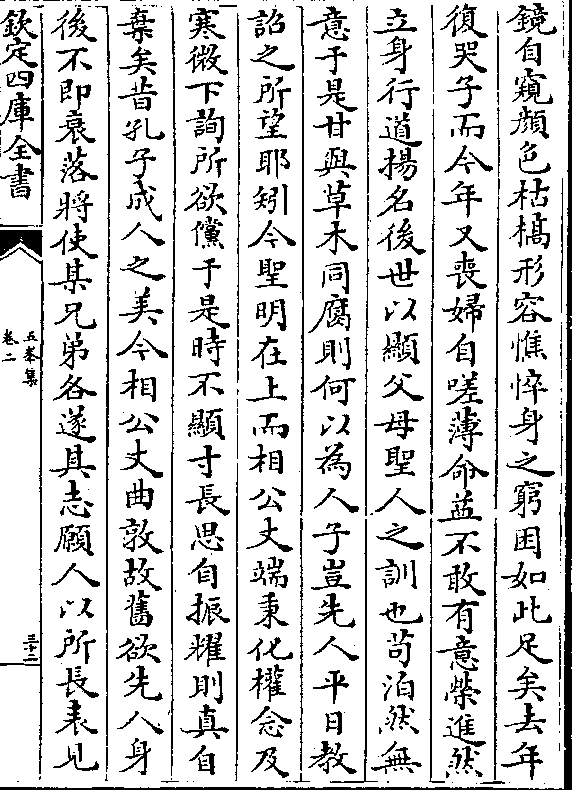 鏡自窺顔色枯槁形容憔悴身之窮困如此足矣去年
復哭子而今年又喪婦自嗟薄命益不敢有意榮進然
立身行道揚名後世以顯父母聖人之訓也茍泊然無
意于是甘與草木同腐則何以為人子豈先人平日教
詔之所望耶矧今聖明在上而相公丈端秉化權念及
寒微下詢所欲儻于是時不顯寸長思自振耀則真自
棄矣昔孔子成人之美今相公丈曲敦故舊欲先人身
後不即衰落將使某兄弟各遂其志願人以所長表見
欽定四庫全書
五峯集
卷二
三十二